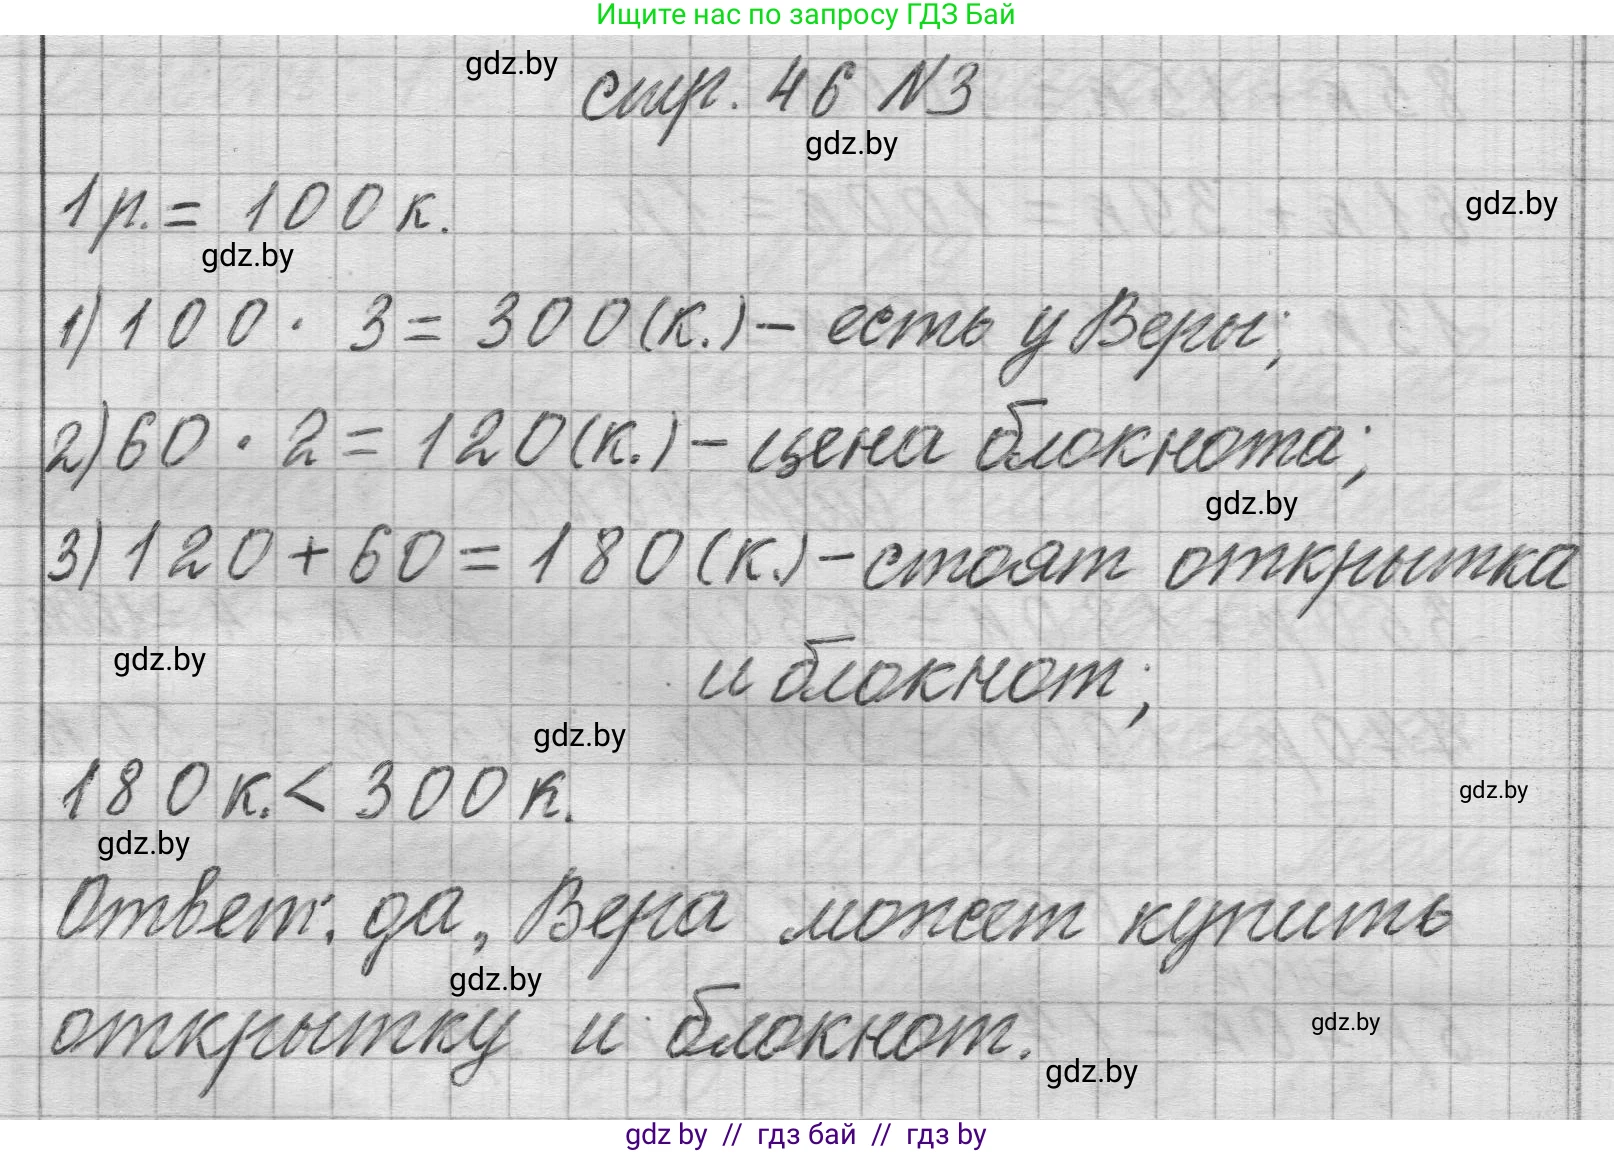 Ищите нас по запросу ГДЗ Бай
gdz.by
стр. 46 N3
gdz.by
1р. = 100 к.
gdz.by
gdz.by
1) 100 · 3 = 300 (к.) – есть у Веры;
2) 60 · 2 = 120 (к.) – цена блокнота;
gdz.by
3) 120 + 60 = 180 (к.) – стоят открытка
gdz.by
и блокнот;
gdz.by
180 к. < 300 к.
gdz.by
gdz.by
Ответ: да, Вера может купить
gdz.by
открытку и блокнот.
gdz.by
gdz.by
gdz by // гдз бай // гдз by